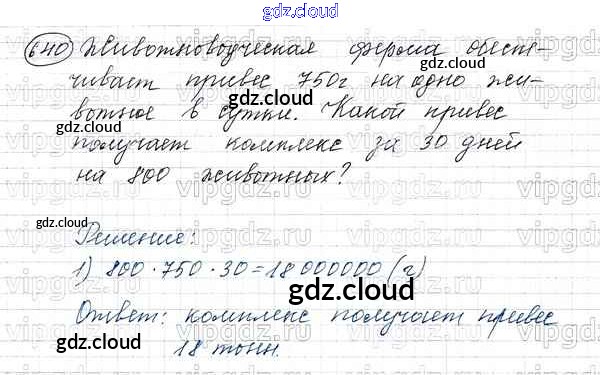 gdz.cloud
640 Животноводческая ферма обеспе-
чивает привес 750г на одно жи-
вотное в сутки. Какой привес
получает комплекс за 30 дней
на 800 животных?
Решение:
1) 800 · 750 · 30 = 18 000000 (г)
Ответ: комплекс получает привес
18 тонн.